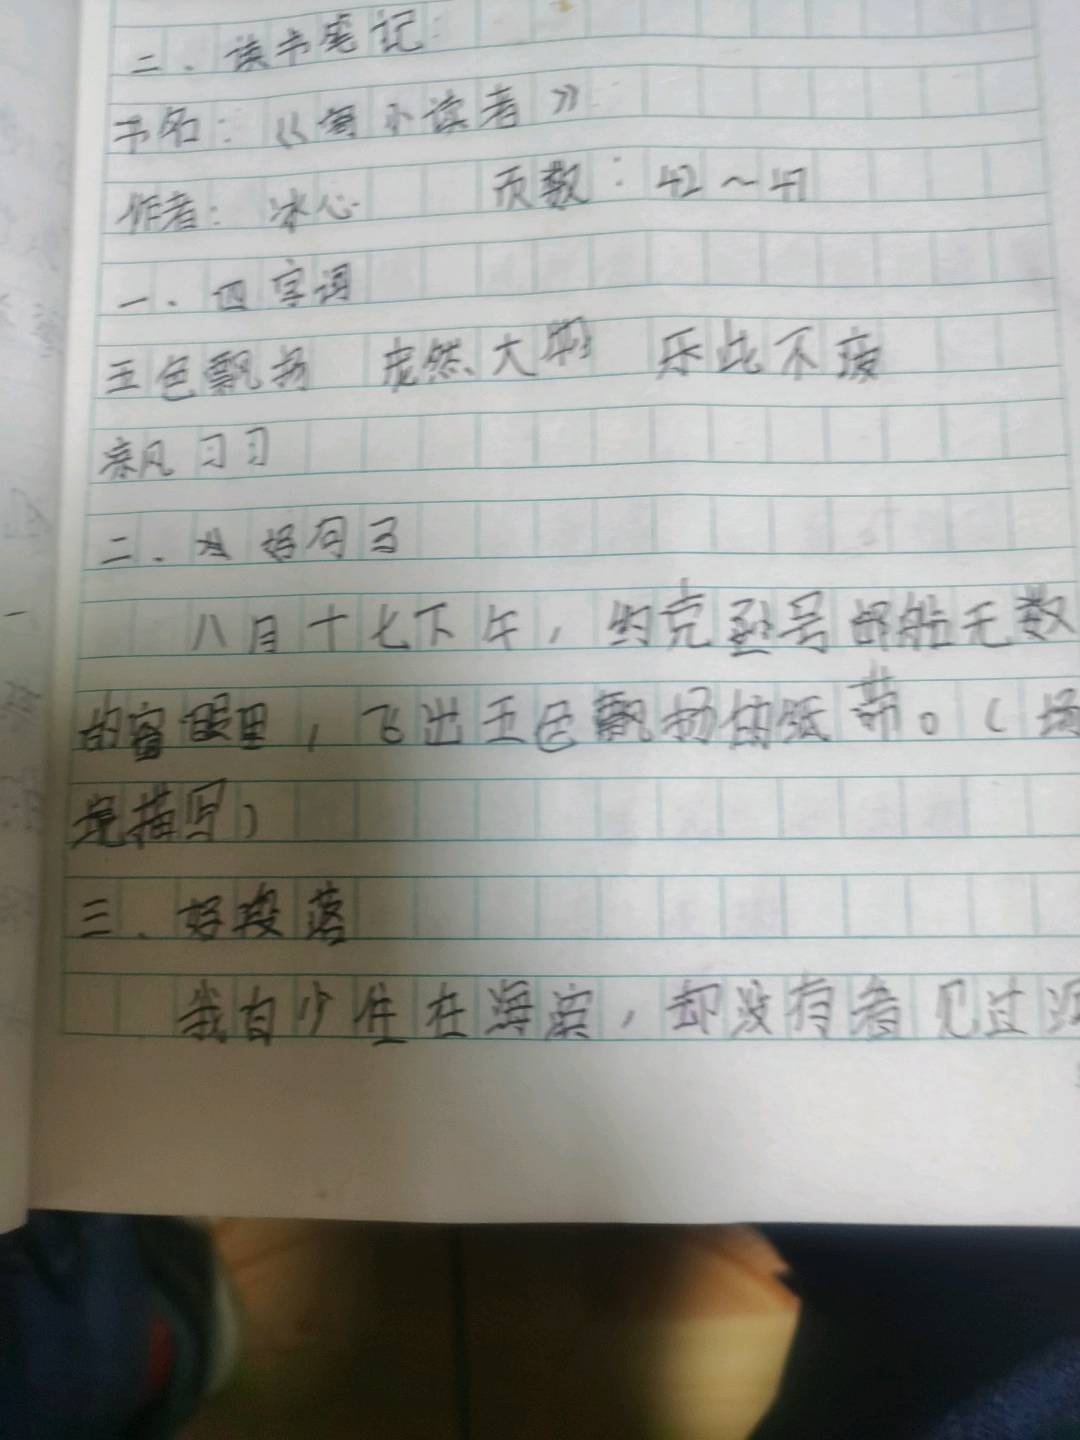 二、读书笔记:
书名:《寄小读者》
作者:冰心 页数:42~47
一、四字词
五色飘扬 庞然大物 乐此不疲
凉风习习
二、好句子
八月十七下午,约克逊号邮船无数
的窗眼里,飞出五色飘扬的纸带。(场
境描写)
三、好段落
我自少住在海滨,却没有看见过